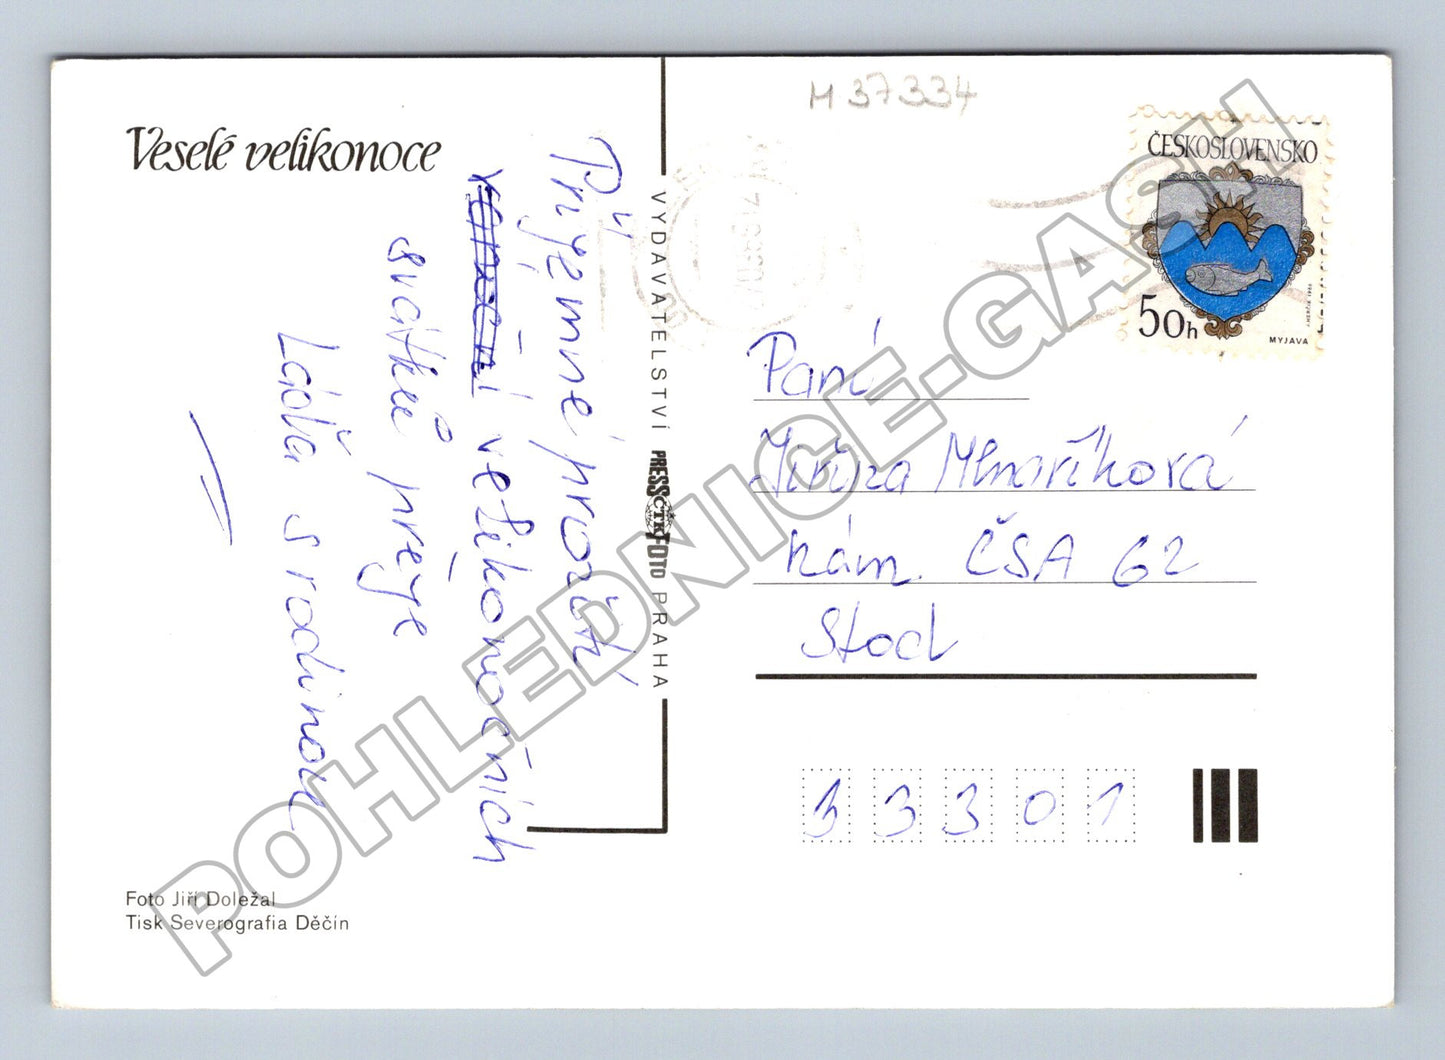 Veselé velikonoce
Příjemné prožití
velikonočních
svátků přeje
Láďa s rodinou
Foto Jiří Doležal
Tisk Severografia Děčín
VYDAVATELSTVÍ PRESSFOTO PRAHA
ČTK
M 37334
ČESKOSLOVENSKO
50h
MYJAVA
Paní
Jiřina Mlnaříková
nám. ČSA 62
Stod
33301
POHLEDNICE-GASH